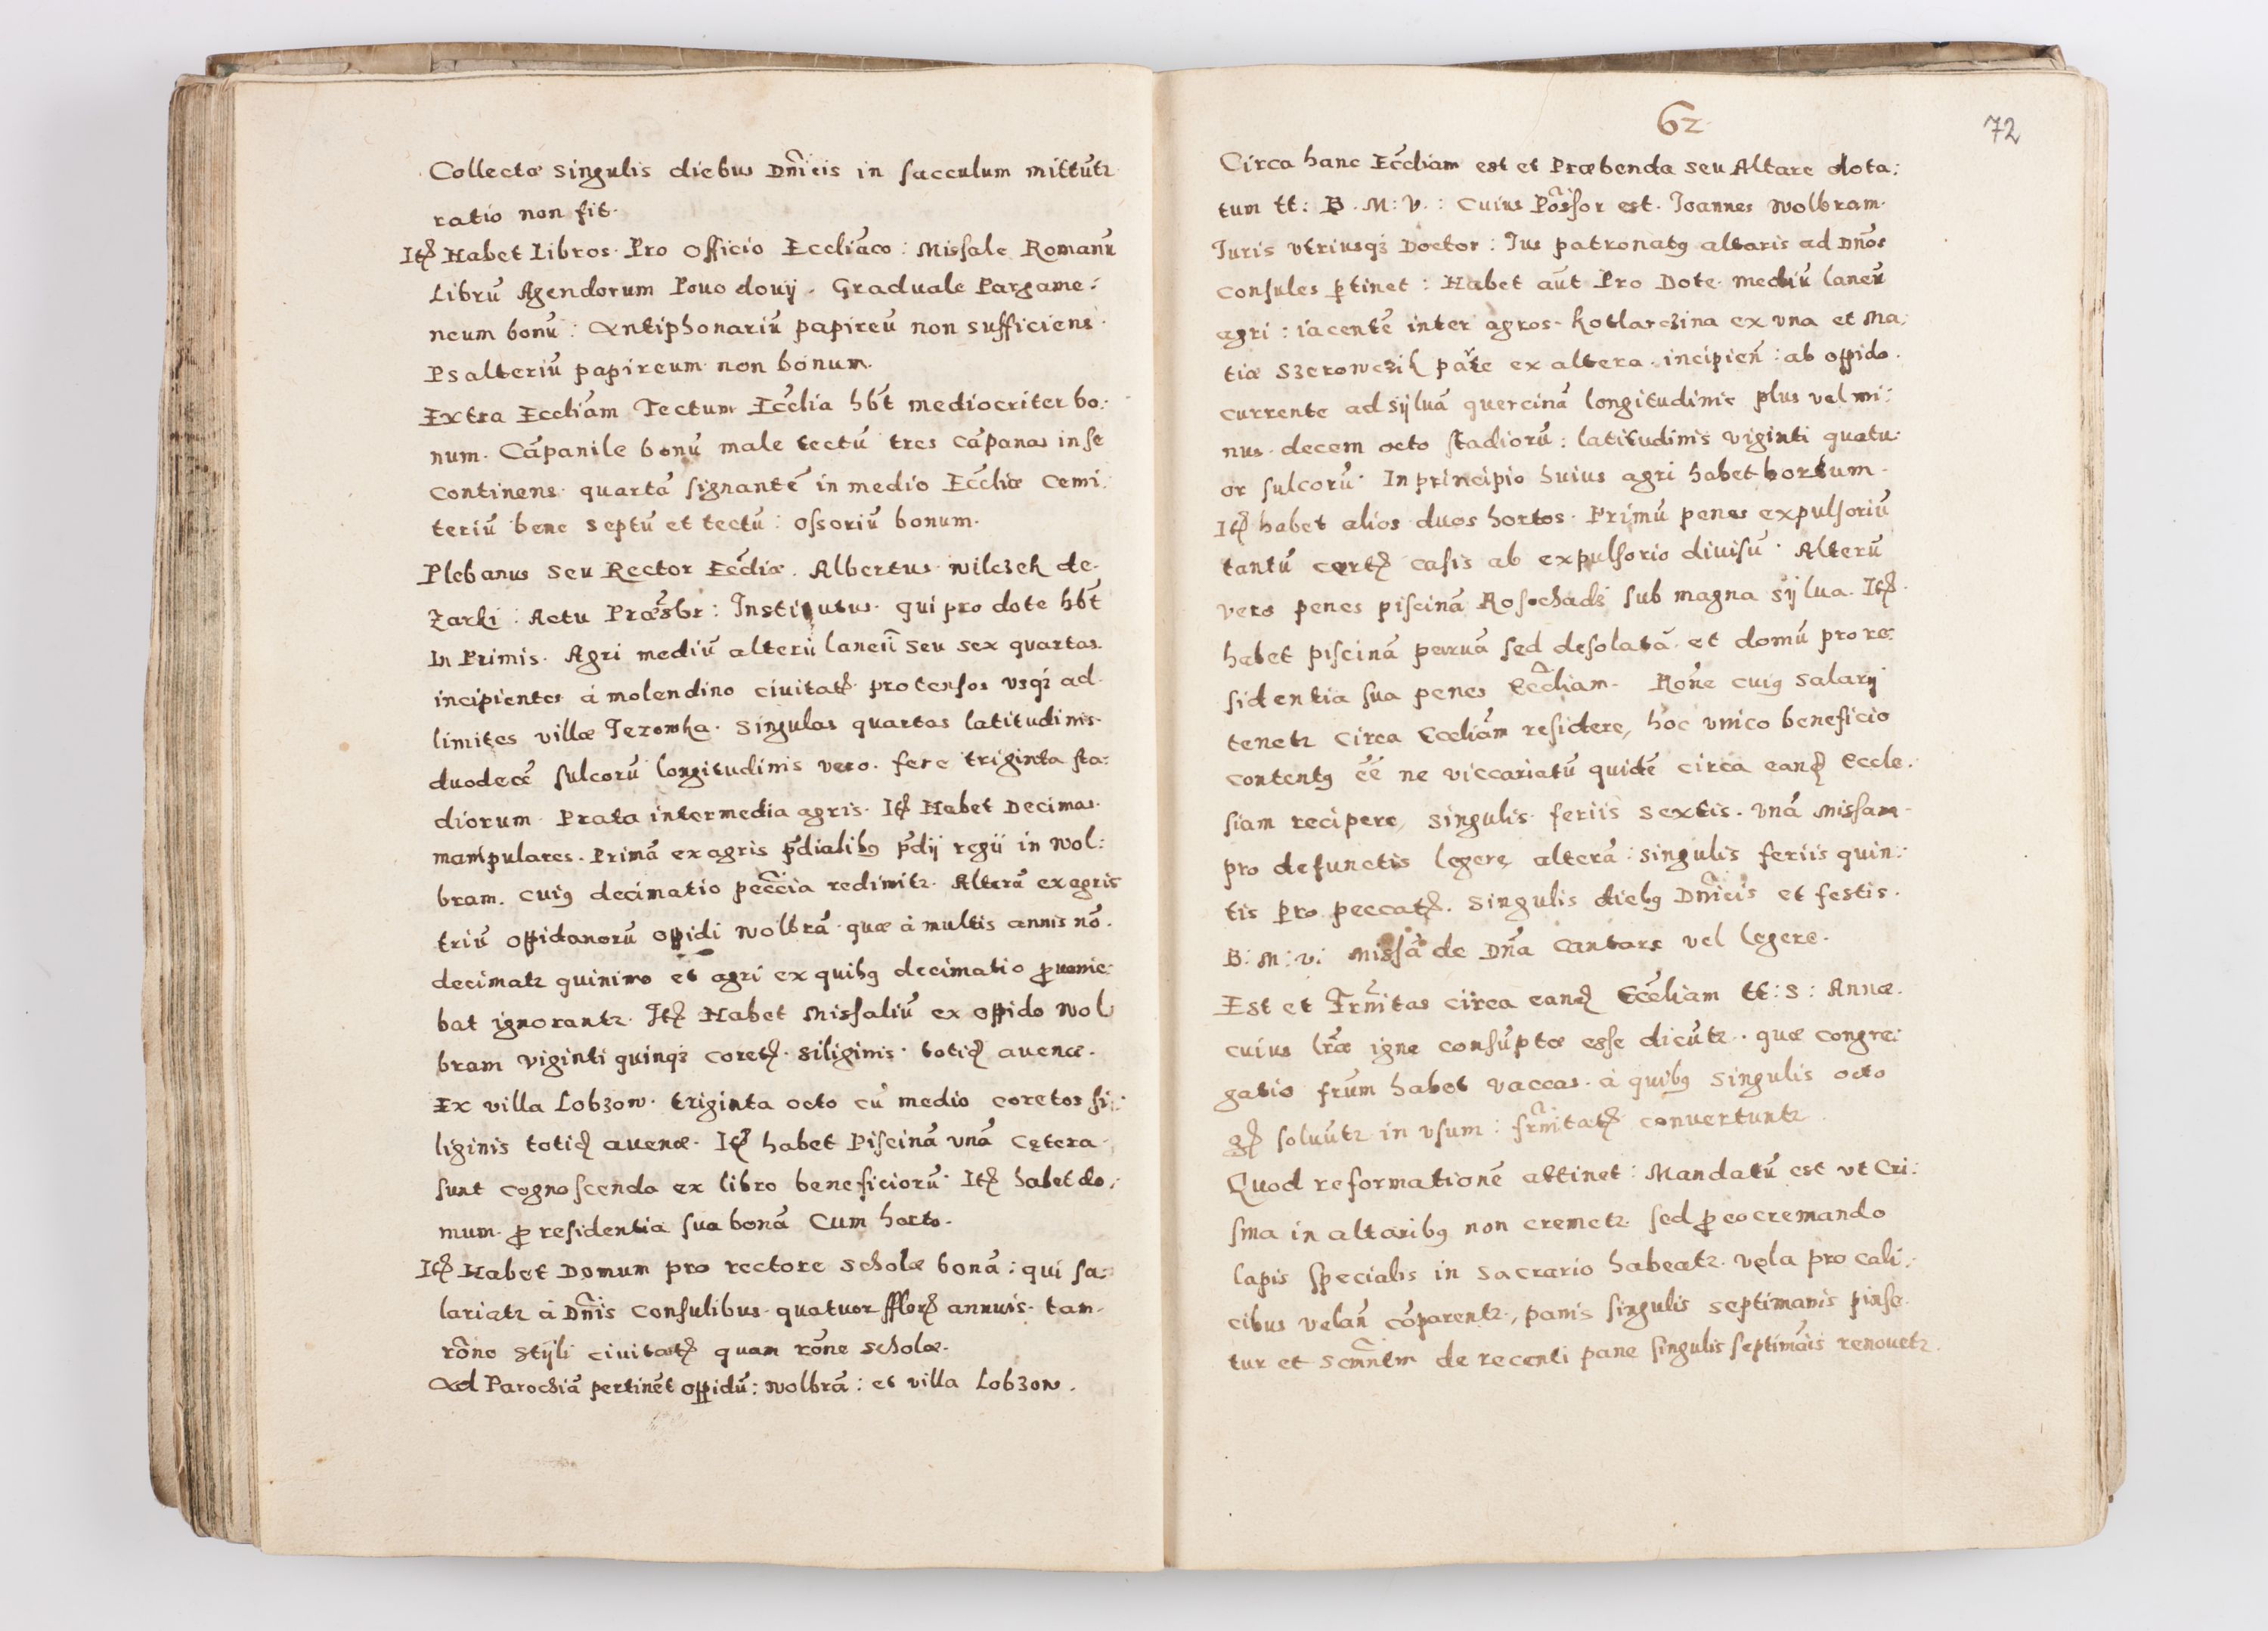 Collectæ singulis diebus Dn̄icis in sacculum mittūtr
ratio non fit.
Itꝫ Habet Libros. Pro Officio Eccliāco: Missale Romanū
Librū Agendorum Pouodouÿ. Graduale Pargame:
neum bonū: Antiphonariū papireū non sufficiens.
Psalteriū papireum non bonum.
Extra Eccliām Tectum Ecc̄lia hb̄t mediocriter bo:
num. Cāpanile bonū male tectū tres cāpanas in se
continens. quartā signantē in medio Ecc̄liæ Cemi:
teriū bene septū et tectū: Ossoriū bonum.
Plebanus seu Rector Ecc̄liæ. Albertus Wilczek de
Żarki: Actu Præsb̄r: Institutus. qui pro dote hb̄t
In Primis. Agri mediū alterū laneū seu sex quartas.
incipientes à molendino ciuitatꝫ protensos vsqꝫ ad
limites villæ Jezowka. Singulas quartas latitudinis.
duodecē sulcorū longitudinis vero. fere triginta sta:
diorum. Prata intermedia agris. Itꝫ Habet Decimas.
manipulares. Primā ex agris p̄dialibꝰ p̄dij regii in Wol:
bram. cuiꝰ decimatio pecc̄ia redimitr. Alterā ex agris
triū oppidanorū oppidi Wolbrā. quæ à multis annis nō.
decimatr quinimo et agri ex quibꝰ decimatio ꝓuenie:
bat ignorantr. Itꝫ Habet Missaliū ex oppido Wol
bram viginti quinqꝫ coretꝫ. siliginis. totiꝫ auenæ.
Ex villa Lobzow. triginta octo cū medio coretos si:
liginis totiꝫ auenæ. Itꝫ habet Piscinā vnā Cętera
sunt cognoscenda ex libro beneficiorū. Itꝫ habet do:
mum. ꝓ residentia sua bonā Cum horto.
Itꝫ Habet Domum pro rectore scholæ bonā: qui sa:
lariatr à Dn̄is Consulibus. quatuor fflorꝫ annuis. tam
rōne stÿli ciuitatꝫ quam rōne scholæ.
Ad Parochiā pertinēt oppidū: Wolbrā: et villa Lobzow.
62
72
Circa hanc Ecc̄liam est et Præbenda seu Altare dota:
tum tt: B. M: V.: Cuius Pōssor est. Joannes Wolbram.
Juris vtriusqꝫ Doctor: Jus patronatꝰ altaris ad Dn̄os
consules ꝑtinet: Habet aūt Pro Dote. mediū laneū
agri: iacentē inter agros. Kotlarczina ex vna et Ma:
tiæ Szerowczik par̄te ex altera. incipien̄: ab oppido.
currente ad sÿluā quercinā longitudinis plus vel mi:
nus. decem octo stadiorū: latitudinis viginti quatu:
or sulcorū. In principio huius agri habet hortum.
Itꝫ habet alios duos hortos. Primū penes expulsoriū
tantū certꝫ casis ab expulsorio diuisū. Alterū
vero penes piscinā Rosochadz sub magna sÿlua. Itꝫ.
habet piscinā paruā sed desolatā. et domū pro re:
sidentia sua penes Ecc̄liam. Rōne cuiꝰ salarij
tenetr circa Eccliām residere, hoc vnico beneficio
contentꝰ ēē ne viccariatū quidē circa eanꝫ Eccle.
siam recipere, singulis feriis sextis. vnā Missam
pro defunctis legere, alterā: singulis feriis quin:
tis pro peccatꝫ. Singulis diebꝰ Dn̄icis et festis.
B: M: V: Missā de Dn̄a cantare vel legere.
Est et Frn̄itas circa eanꝫ Ecc̄liam tt: S: Annæ.
cuius lr̄æ igne consūptæ esse dicūtr. quæ congre:
gatio fr̄um habet vaccas. à quibꝰ singulis octo
gꝫ soluūtr in vsum: frn̄itatꝫ convertuntr.
Quod reformationē attinet: Mandatū est vt Cri:
sma in altaribꝰ non cremetr. sed ꝓ eo cremando
lapis specialis in sacrario habeatr. vela pro cali:
cibus velan̄ cōparentr., panis singulis septimanis pinse
tur et Scm̄ntm̄ de recenti pane singulis septimāis renouetr.